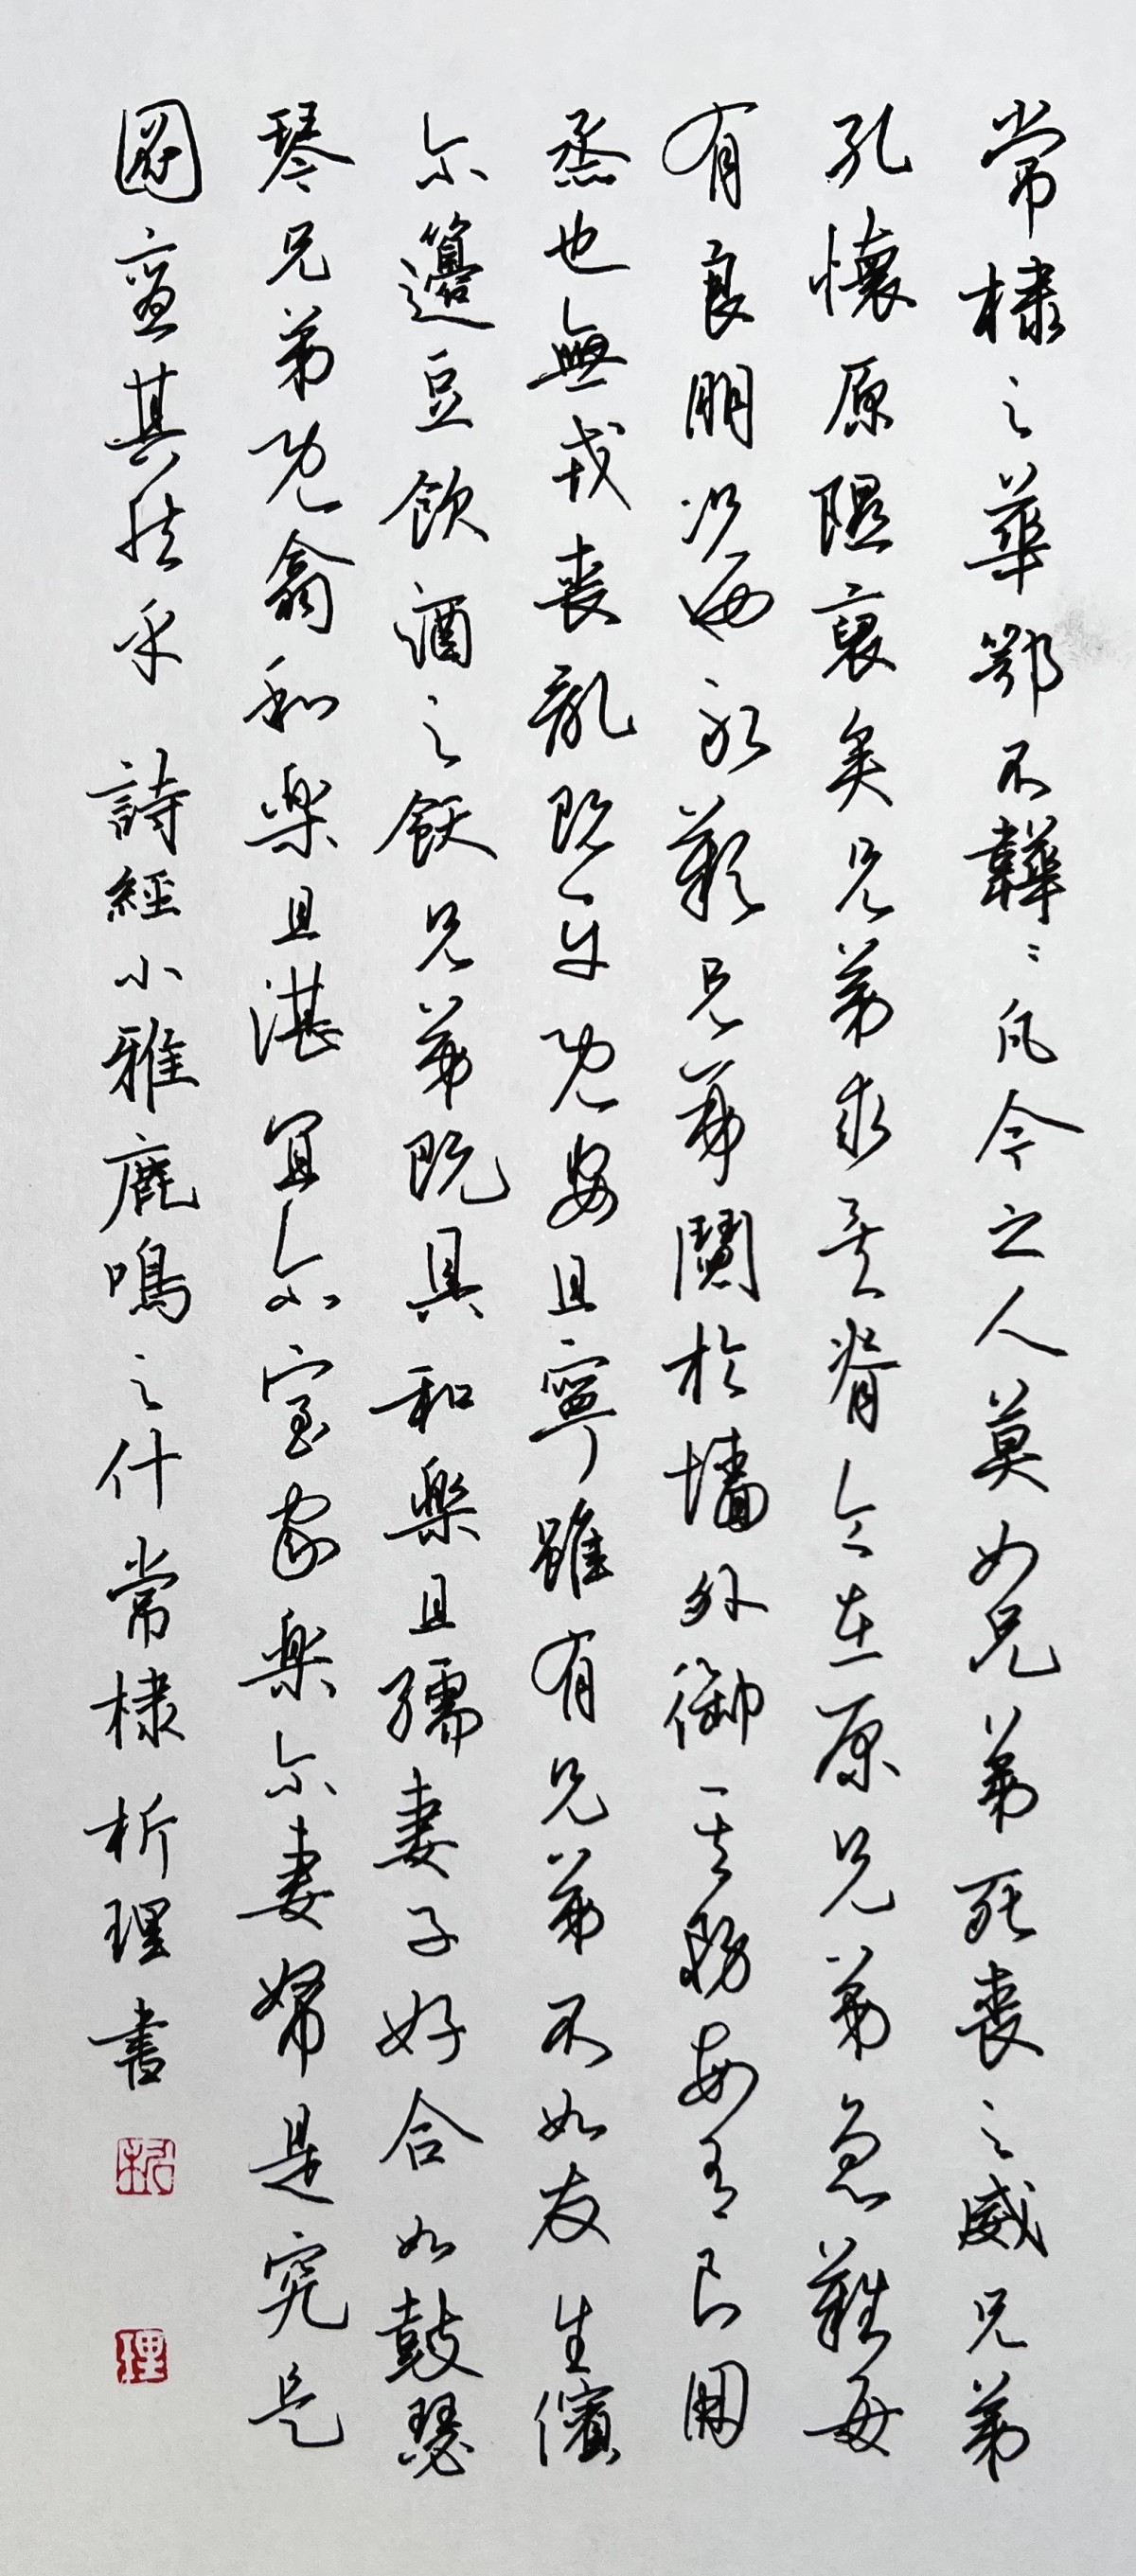 常棣之華鄂不韡〻凡今之人莫如兄弟死喪之威兄弟
孔懷原隰裒矣兄弟求矣脊令在原兄弟急難每
有良朋况也永歎兄弟鬩於墻外禦其務每有良朋
烝也無戎喪亂既平既安且寧雖有兄弟不如友生儐
尔籩豆飲酒之飫兄弟既具和楽且孺妻子好合如鼓瑟
琴兄弟既翕和楽且湛宜尔室家楽尔妻帑是究是
圖亶其然乎 詩經小雅鹿鳴之什常棣 析理書
析
理